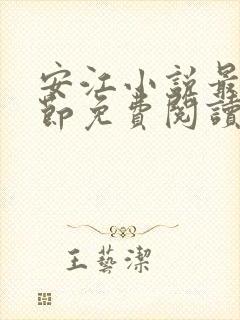 安江小说最
節免費閱讀
王藝潔